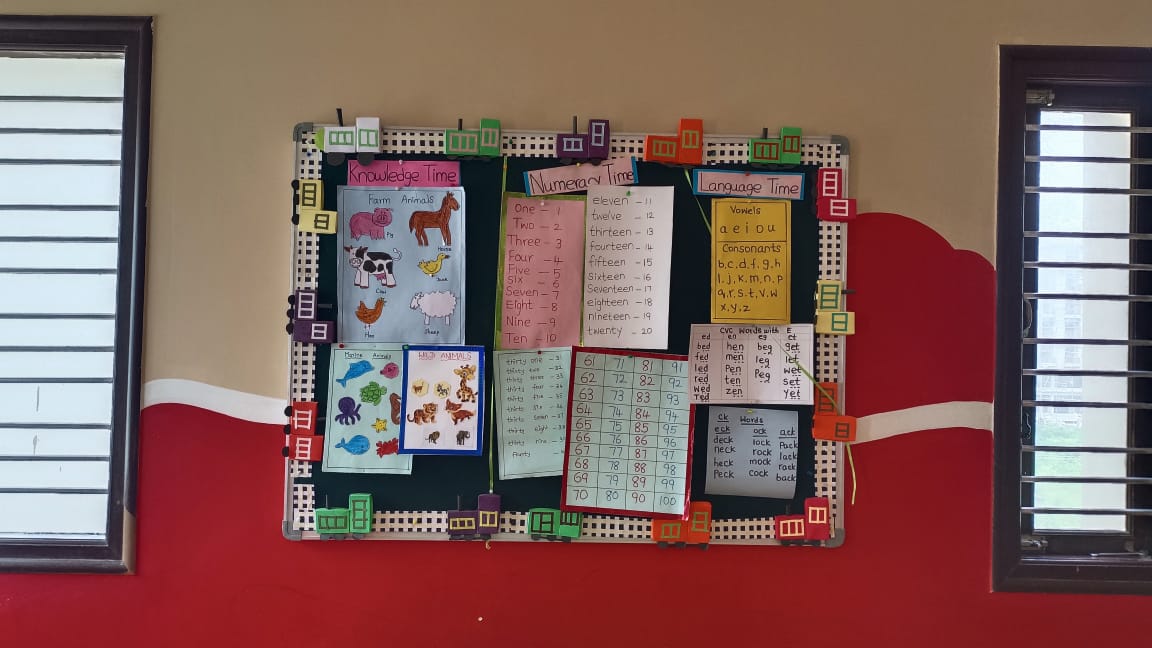 Knowledge Time
Farm Animals
Pig
Horse
Cow
Duck
Hen
Sheep
Marine Animals
WILD ANIMALS
Numeracy Time
One - 1
Two - 2
Three - 3
Four - 4
Five - 5
Six - 6
Seven - 7
Eight - 8
Nine - 9
Ten - 10
eleven - 11
twelve - 12
thirteen - 13
fourteen - 14
fifteen - 15
sixteen - 16
Seventeen - 17
eighteen - 18
nineteen - 19
twenty - 20
thirty one - 31
thirty two - 32
thirty three - 33
thirty four - 34
thirty five - 35
thirty six - 36
thirty seven - 37
thirty eight - 38
thirty nine - 39
61 71 81 91
62 72 82 92
63 73 83 93
64 74 84 94
65 75 85 95
66 76 86 96
67 77 87 97
68 78 88 98
69 79 89 99
70 80 90 100
Language Time
Vowels
a e i o u
Consonants
b, c, d, f, g, h
l, j, k, m, n, p
q, r, s, t, v, w
x, y, z
CVC Words with E
ed en eg et
bed hen beg get
fed men leg let
led Pen Peg wet
red ten set
wed zen yet
Ted
Ck Words
eck ock ack
deck lock Pack
neck rock lack
heck mock rack
Peck cock back